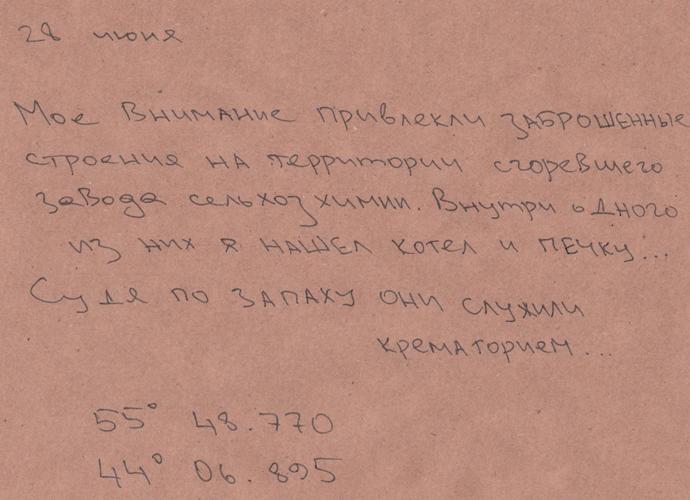 28 июня
Мое внимание привлекли заброшенные
строения на территории сгоревшего
завода сельхозхимии. Внутри одного
из них я нашел котел и печку...
Судя по запаху они служили
крематорием...
55° 48.770
44° 06.895